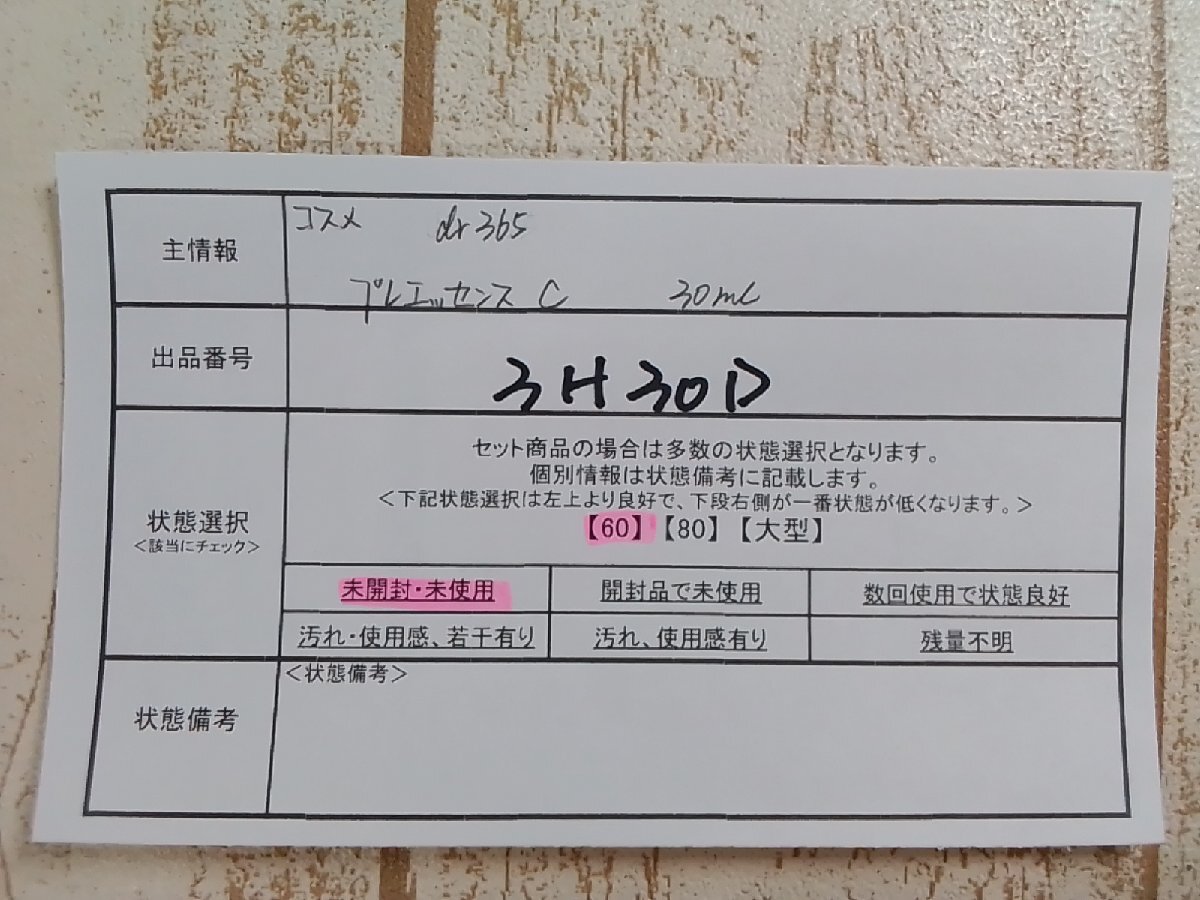 主情報
コスメ dr365
プレエッセンス C 30ml
出品番号
3H30D
状態選択
<該当にチェック>
セット商品の場合は多数の状態選択となります。
個別情報は状態備考に記載します。
<下記状態選択は左上より良好で、下段右側が一番状態が低くなります。>
【60】【80】【大型】
未開封・未使用 開封品で未使用 数回使用で状態良好
汚れ・使用感、若干有り 汚れ、使用感有り 残量不明
状態備考
<状態備考>